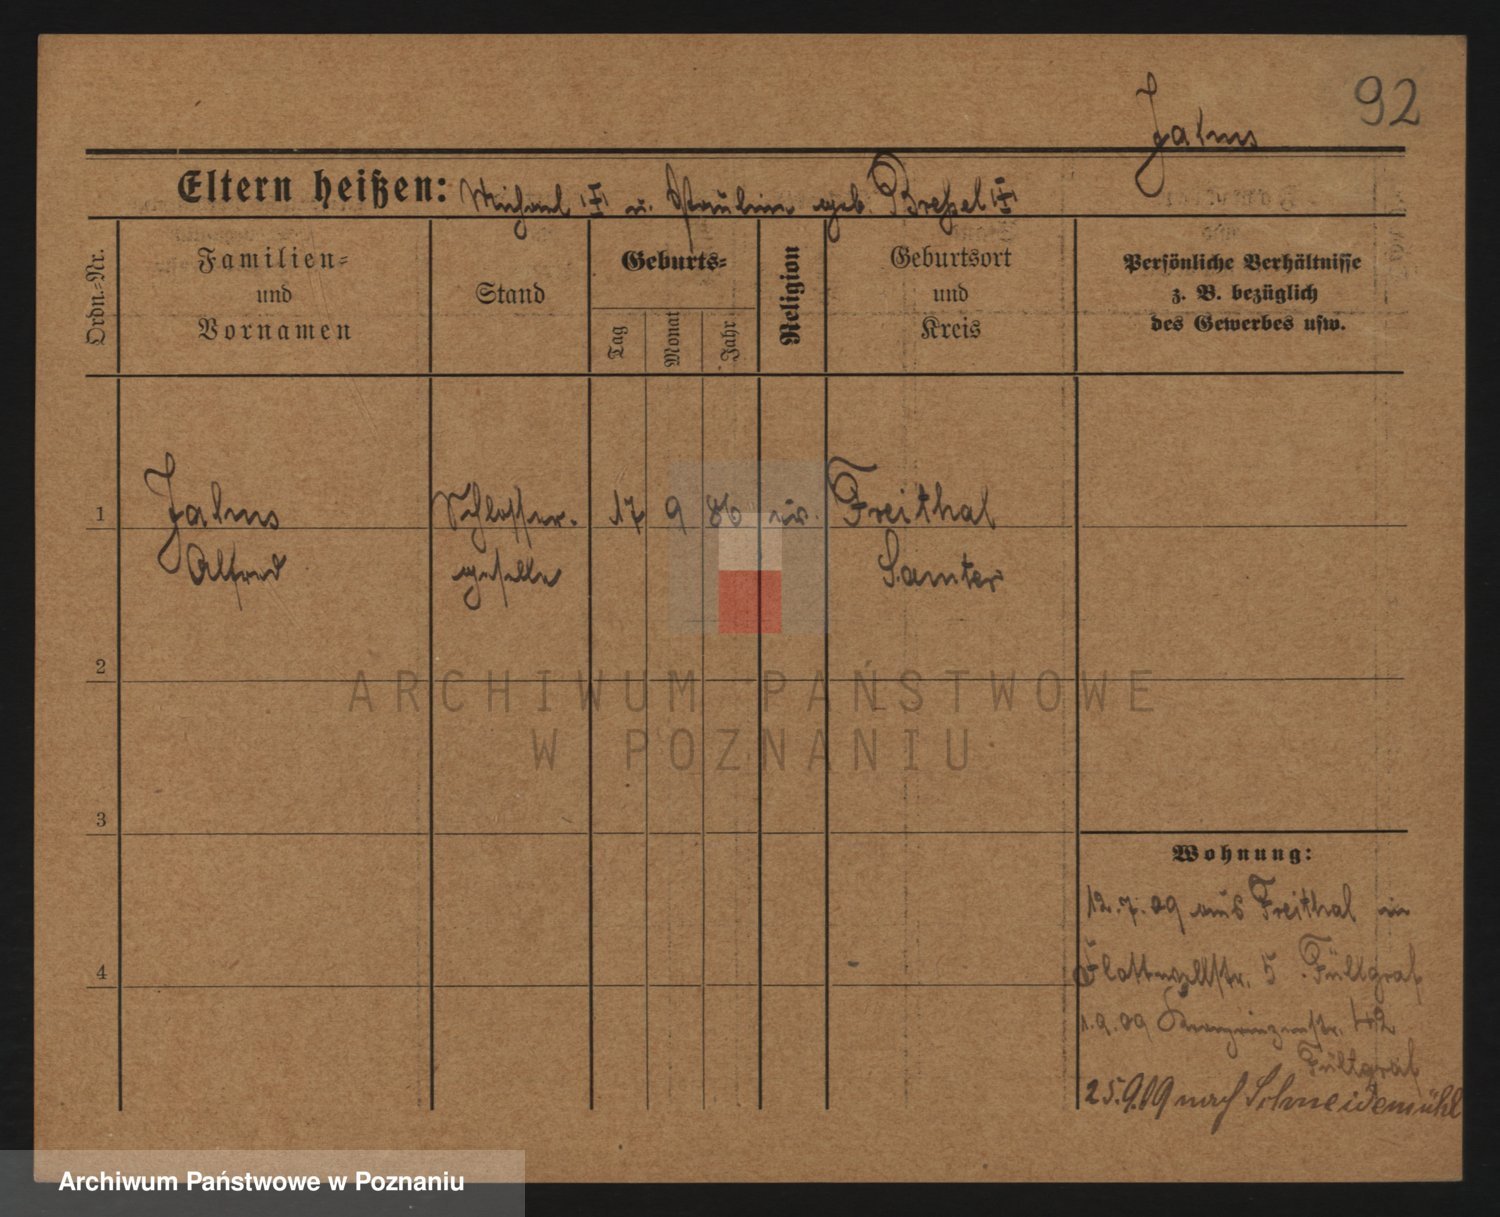 92
Jahns
Eltern heißen: Michael u. Pauline geb.
Ordn.-Nr.
Familien-
und
Vornamen
Stand
Geburts-
Tag
Monat
Jahr
Religion
Geburtsort
und
Kreis
Persönliche Verhältnisse
z. B. bezüglich
des Gewerbes usw.
1
Jahns
Alfred
Schlosser-
geselle
17 9 86
Freithal
Samter
2
3
4
ARCHIWUM PAŃSTWOWE
W POZNANIU
Wohnung:
12.7.09 aus Freithal in
Flottwellstr. 5 Füllgraf
1.9.09 Kronprinzenstr. 42
Füllgraf
25.9.09 nach Schneidemühl
Archiwum Państwowe w Poznaniu